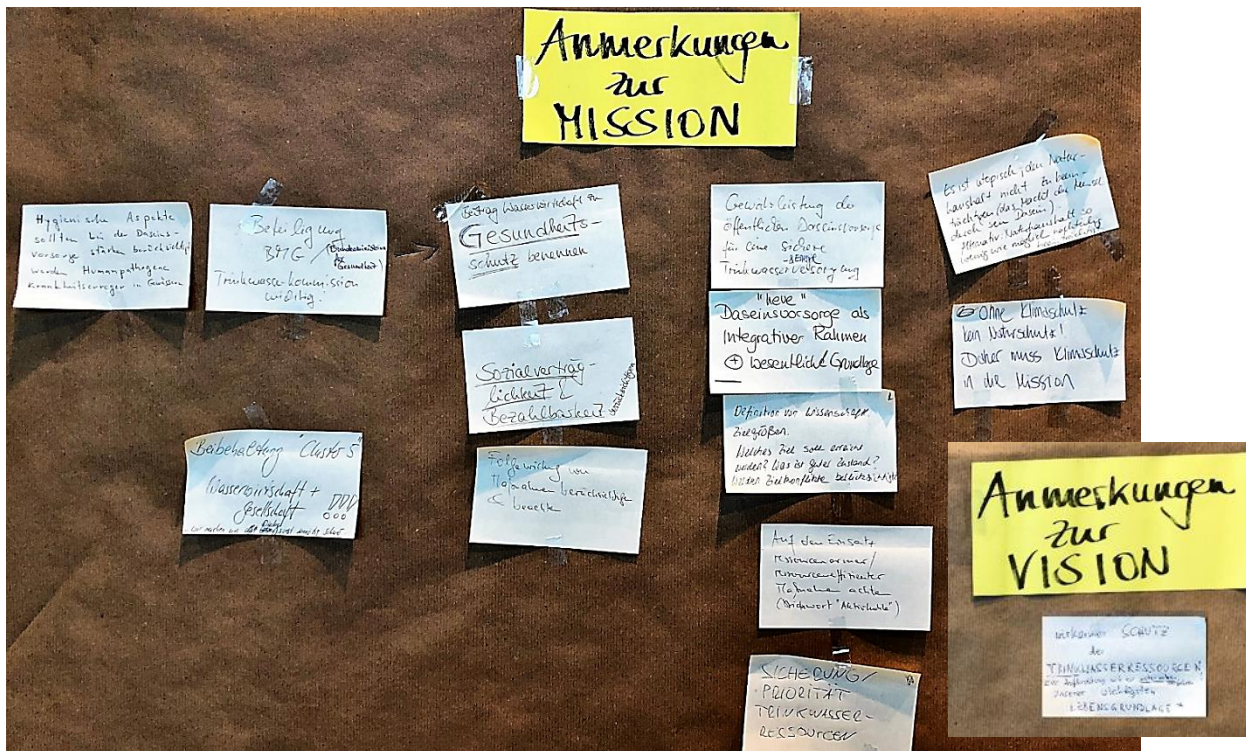 Anmerkungen
zur
MISSION
Hygienische Aspekte
sollten bei der Daseins-
vorsorge stärker berücksichtigt
werden Humanpathogene
Krankheitserreger in Gewässern
Beteiligung
BMG / (Bundesministerium
für
Gesundheit)
Trinkwasserkommission
wichtig!
Beitrag Wasserwirtschaft zu
Gesundheits-
schutz benennen
Sozialverträg-
lichkeit &
Bezahlbarkeit berücksichtigen
Folgewirkung von
Maßnahmen berücksichtigen
&
Beibehaltung "Cluster 5"
Wasserwirtschaft +
Gesellschaft
Gewährleistung der
öffentlichen Daseinsvorsorge
für eine sichere
Trinkwasserversorgung
"neue"
Daseinsvorsorge als
Integrativer Rahmen
+ wesentliche Grundlage
Definition von wissenschaftl.
Zielgrößen.
Welches Ziel soll erreicht
werden? Was ist guter Zustand?
Werden Zielkonflikte
Auf den Einsatz
ressourcenarmer/
ressourceneffizienter
Maßnahmen achten
(Stichwort "Aktivkohle")
SICHERUNG/
PRIORITÄT
TRINKWASSER-
RESSOURCEN
Es ist utopisch, den Natur-
haushalt nicht zu beein-
trächtigen (das macht der Mensch
durch sein Dasein).
so
wenig wie möglich
Ohne Klimaschutz
kein Naturschutz!
Daher muss Klimaschutz
in die Mission
Anmerkungen
zur
VISION
wirksamer SCHUTZ
der
TRINKWASSERRESSOURCEN
unserer wichtigsten
LEBENSGRUNDLAGE